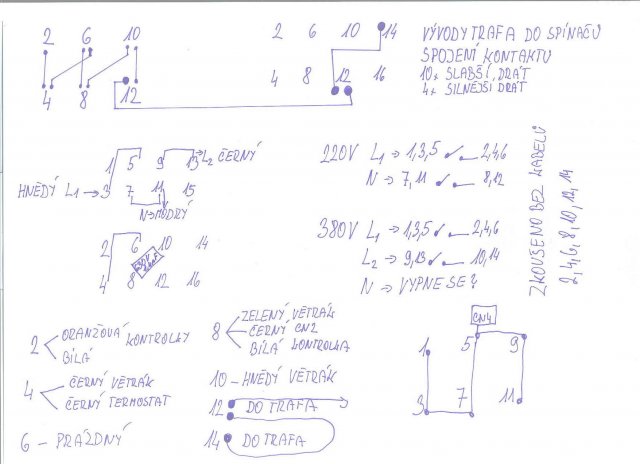 2 6 10
4 8 12
2 6 10 14
4 8 12 16
VÝVODY TRAFA DO SPÍNAČU
SPOJENÍ KONTAKTU
10x SLABŠÍ DRÁT
4x SILNĚJŠÍ DRÁT
1 5 9 13 → L2 ČERNÝ
HNĚDÝ L1 → 3 7 11 15
N → MODRÝ
220V L1 → 1,3,5 2,4,6
N → 7,11 8,12
2 6 10 14
4 8 12 16
380V L1 → 1,3,5 2,4,6
L2 → 9,13 10,14
N → VYPNE SE?
ZKOUŠENO BEZ KABELŮ
2,4,6,8,10,12,14
2 ORANŽOVÁ KONTROLKY
BÍLÁ
4 ČERNÝ VĚTRÁK
ČERNÝ TERMOSTAT
6 - PRÁZDNÝ
8 ZELENÝ VĚTRÁK
ČERNÝ CN2
BÍLÁ KONTROLKA
10 - HNĚDÝ VĚTRÁK
12 DO TRAFA
14 DO TRAFA
CN4
1 5 9
3 7 11